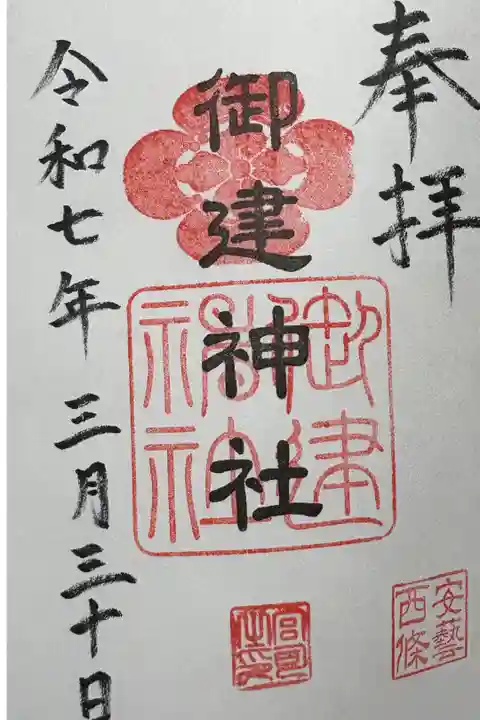 奉拝
御建神社
御建神社
安藝西條
令和七年三月三十日